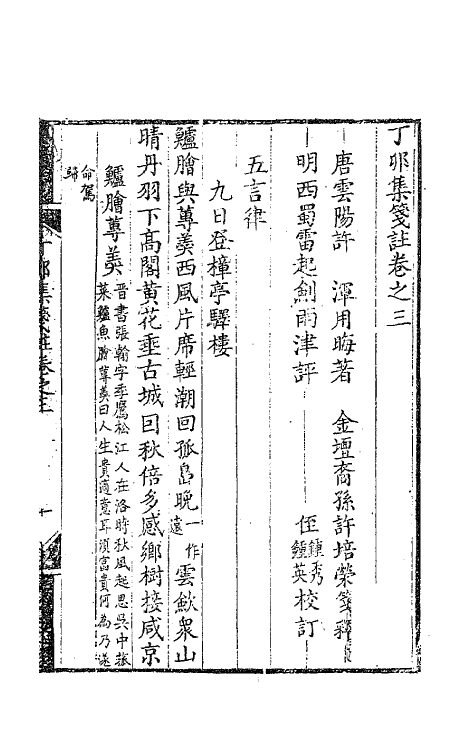 丁卯集箋註卷之三
唐雲陽許　渾用晦著　金壇裔孫許培榮箋釋
明西蜀雷起劍雨津評　侄鍾秀鍾英校訂
五言律
九日登樟亭驛樓
鱸膾與蓴羹西風片席輕潮回孤島晚一作遠雲歛衆山
晴丹羽下高閣黄花垂古城因秋倍多感鄉樹接咸京
鱸膾蓴羹晉書張翰字季鷹松江人在洛時秋風起思吳中菰
菜鱸魚膾蓴羹曰人生貴適意耳須富貴何為乃遂
命駕
歸
丁卯集箋註卷之三